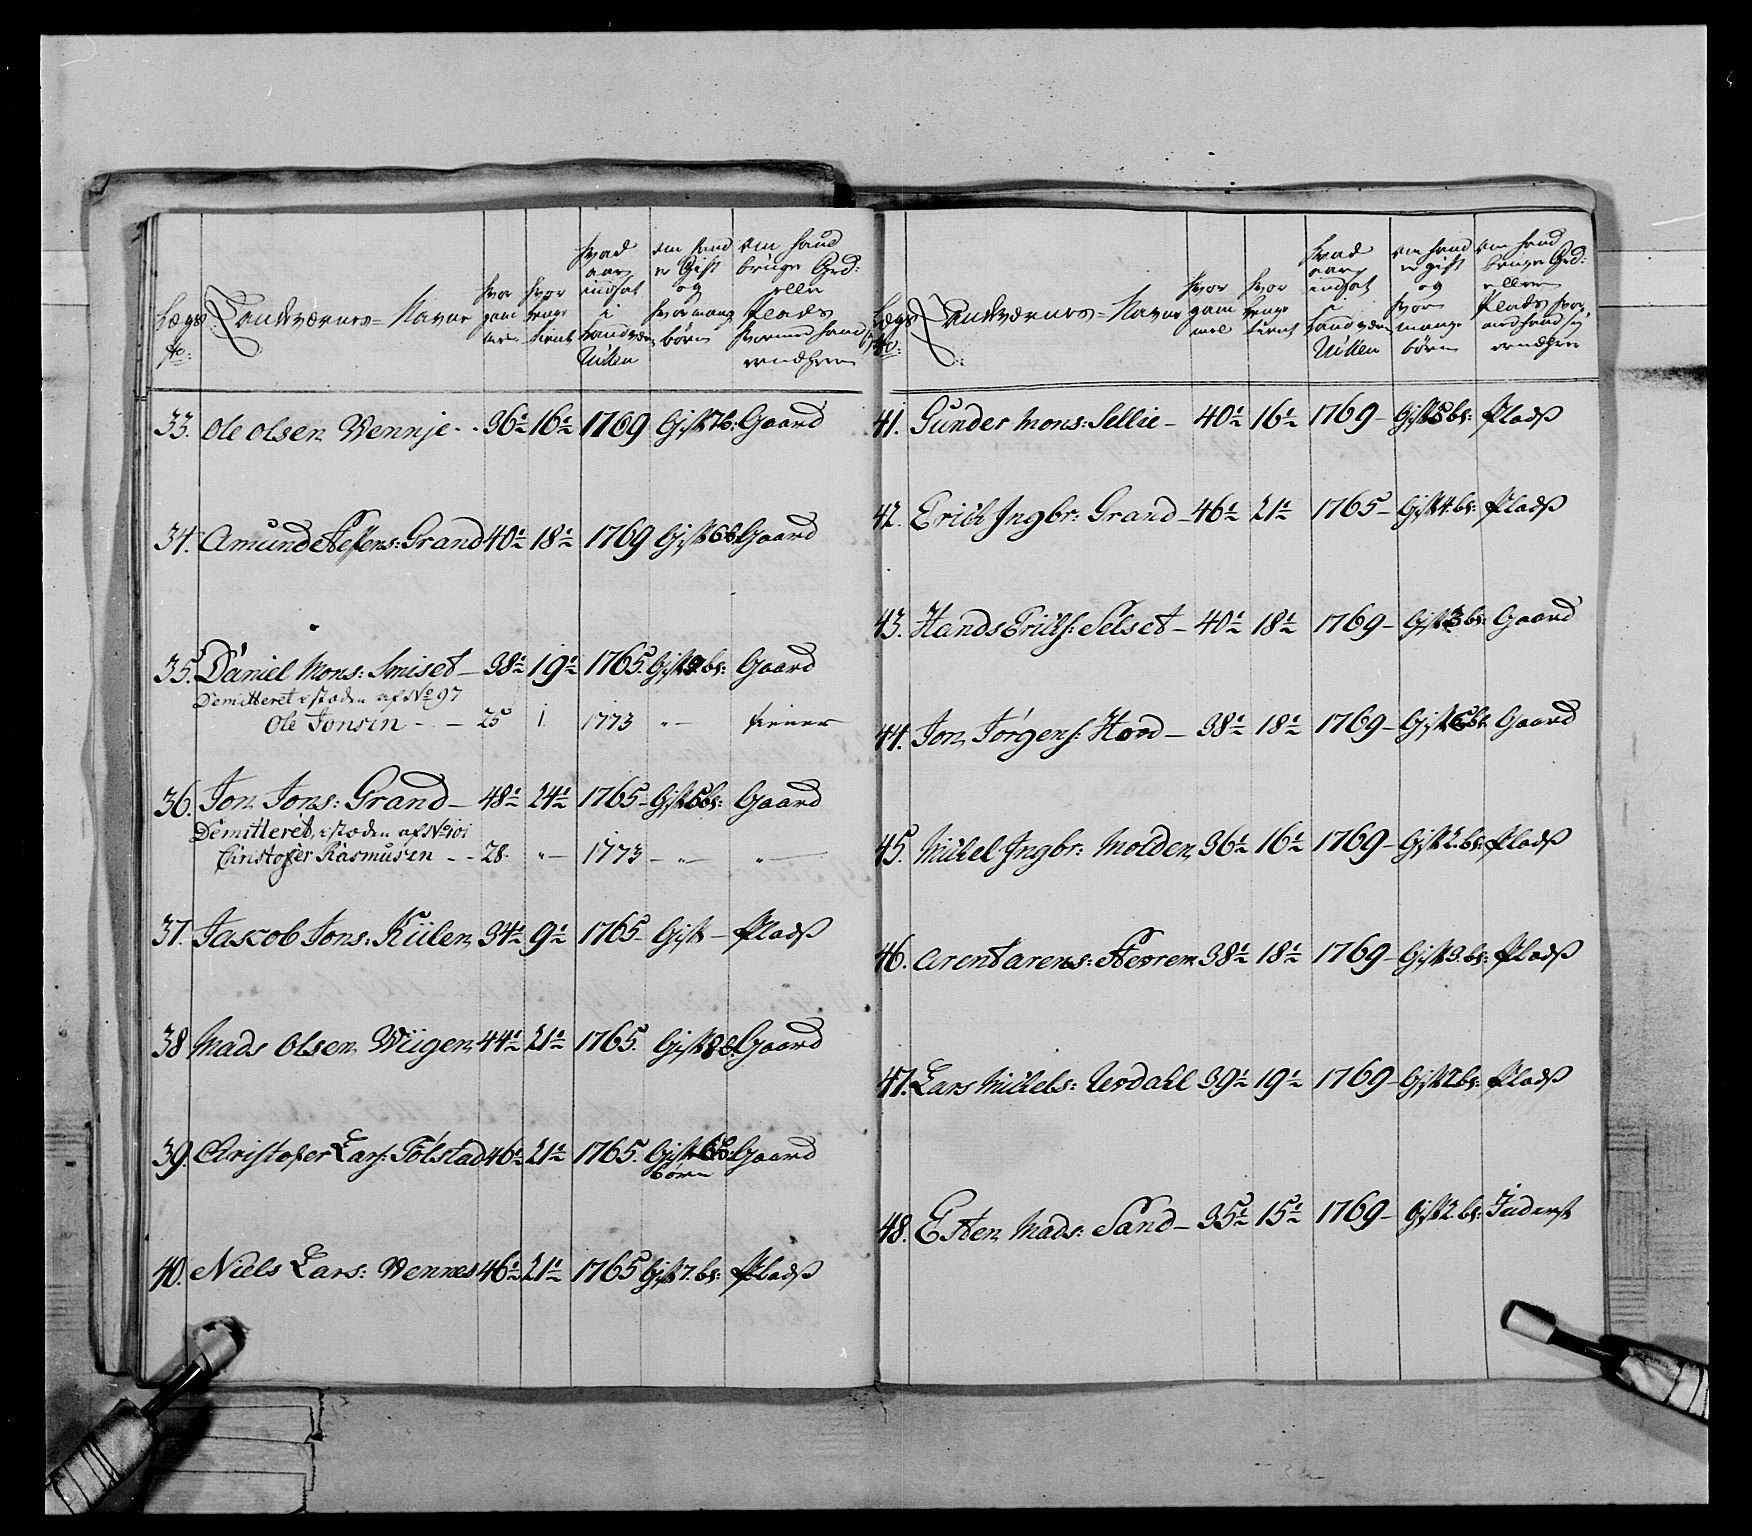 Lægs No: Landværnes-Navne hvor gammel hvor lenge tient hvad aar indsat i Landværn om hand er Gift og hvor mange børn om hand bruger Grd: eller Plads
33. Ole Olsen Wennje - 36 16 1769 Gift 7 b: Gaard
34. Amund Steffens: Grand 40 18 1769 Gift 6 b: Gaard
35. Daniel Mons: Smiset - 38 19 1765. Gift br: Gaard
Demitteret i stæden af No 97
Ole Jonsen - - 25 1 1773 "- tiener
36. Jon Jons: Grand - 48 24 1765 - Gift 5 br: Gaard
Demitteret, i stæden af No 101
Christofer Rasmusen - - 28. "- 1773 - "- "-
37. Jascob Jons: Kiilen 34 9 1765 - Gift - Pladß
38 Mads Olsen Wiigen 44 21 1765. Gift 8 b. Gaard
39. Christofer Lars: Tolstad 46 21 1765. Gift 6 b: Gaard
børn
40. Niels Lars: Wennes 46 21 1765 Gift 7. br: Pladß
Lægs No: Landværnes-Navne hvor gammel hvor lenge tient hvad aar indsat i Landværn om hand er gift og hvor mange børn om hand bruger Grd: eller Plads
41. Gunder Mons: Sellie - 40 16 1769 - Gift 5 br: Pladß
42. Erich Ingbr: Grand - 46 21 1765 - Gift 4. br: Pladß
43. Hands Erichs: Selset - 40 18 1769 - Gift 3 br: Gaard
44. Jon Jörgens: - 38 18 1769 - Gift br: Gaard
45. Michel Ingbr: Molden 36 16 1769 - Gift 2. br: Pladß
46. Arent Arens: 38 18 1769 - Gift 3. br: Pladß
47. Lars Michels: Urdahl 39 19 1769 - Gift br: Pladß
48. Esten Mads: Sand - 35 15 1769 - Gift 2. br: Inderst